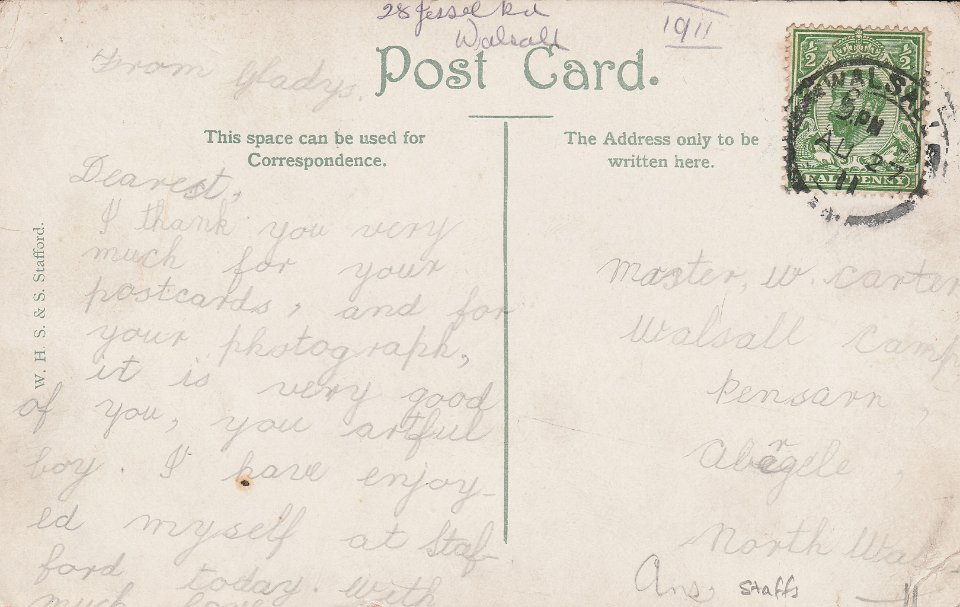 28 Jessel Rd
Walsall
1911
From Gladys.
Post Card.
This space can be used for
Correspondence.
The Address only to be
written here.
½ ½
HALFPENNY
WALSALL
5 PM
AU 23
11
W. H. S. & S. Stafford.
Dearest,
I thank you very
much for your
postcards, and for
your photograph,
it is very good
of you, you artful
boy. I have enjoy-
ed myself at Staf-
ford today. With
much love
Master, W. Carter
Walsall Camp
Pensarn,
Abergele,
North Wales
Ans staffs
11